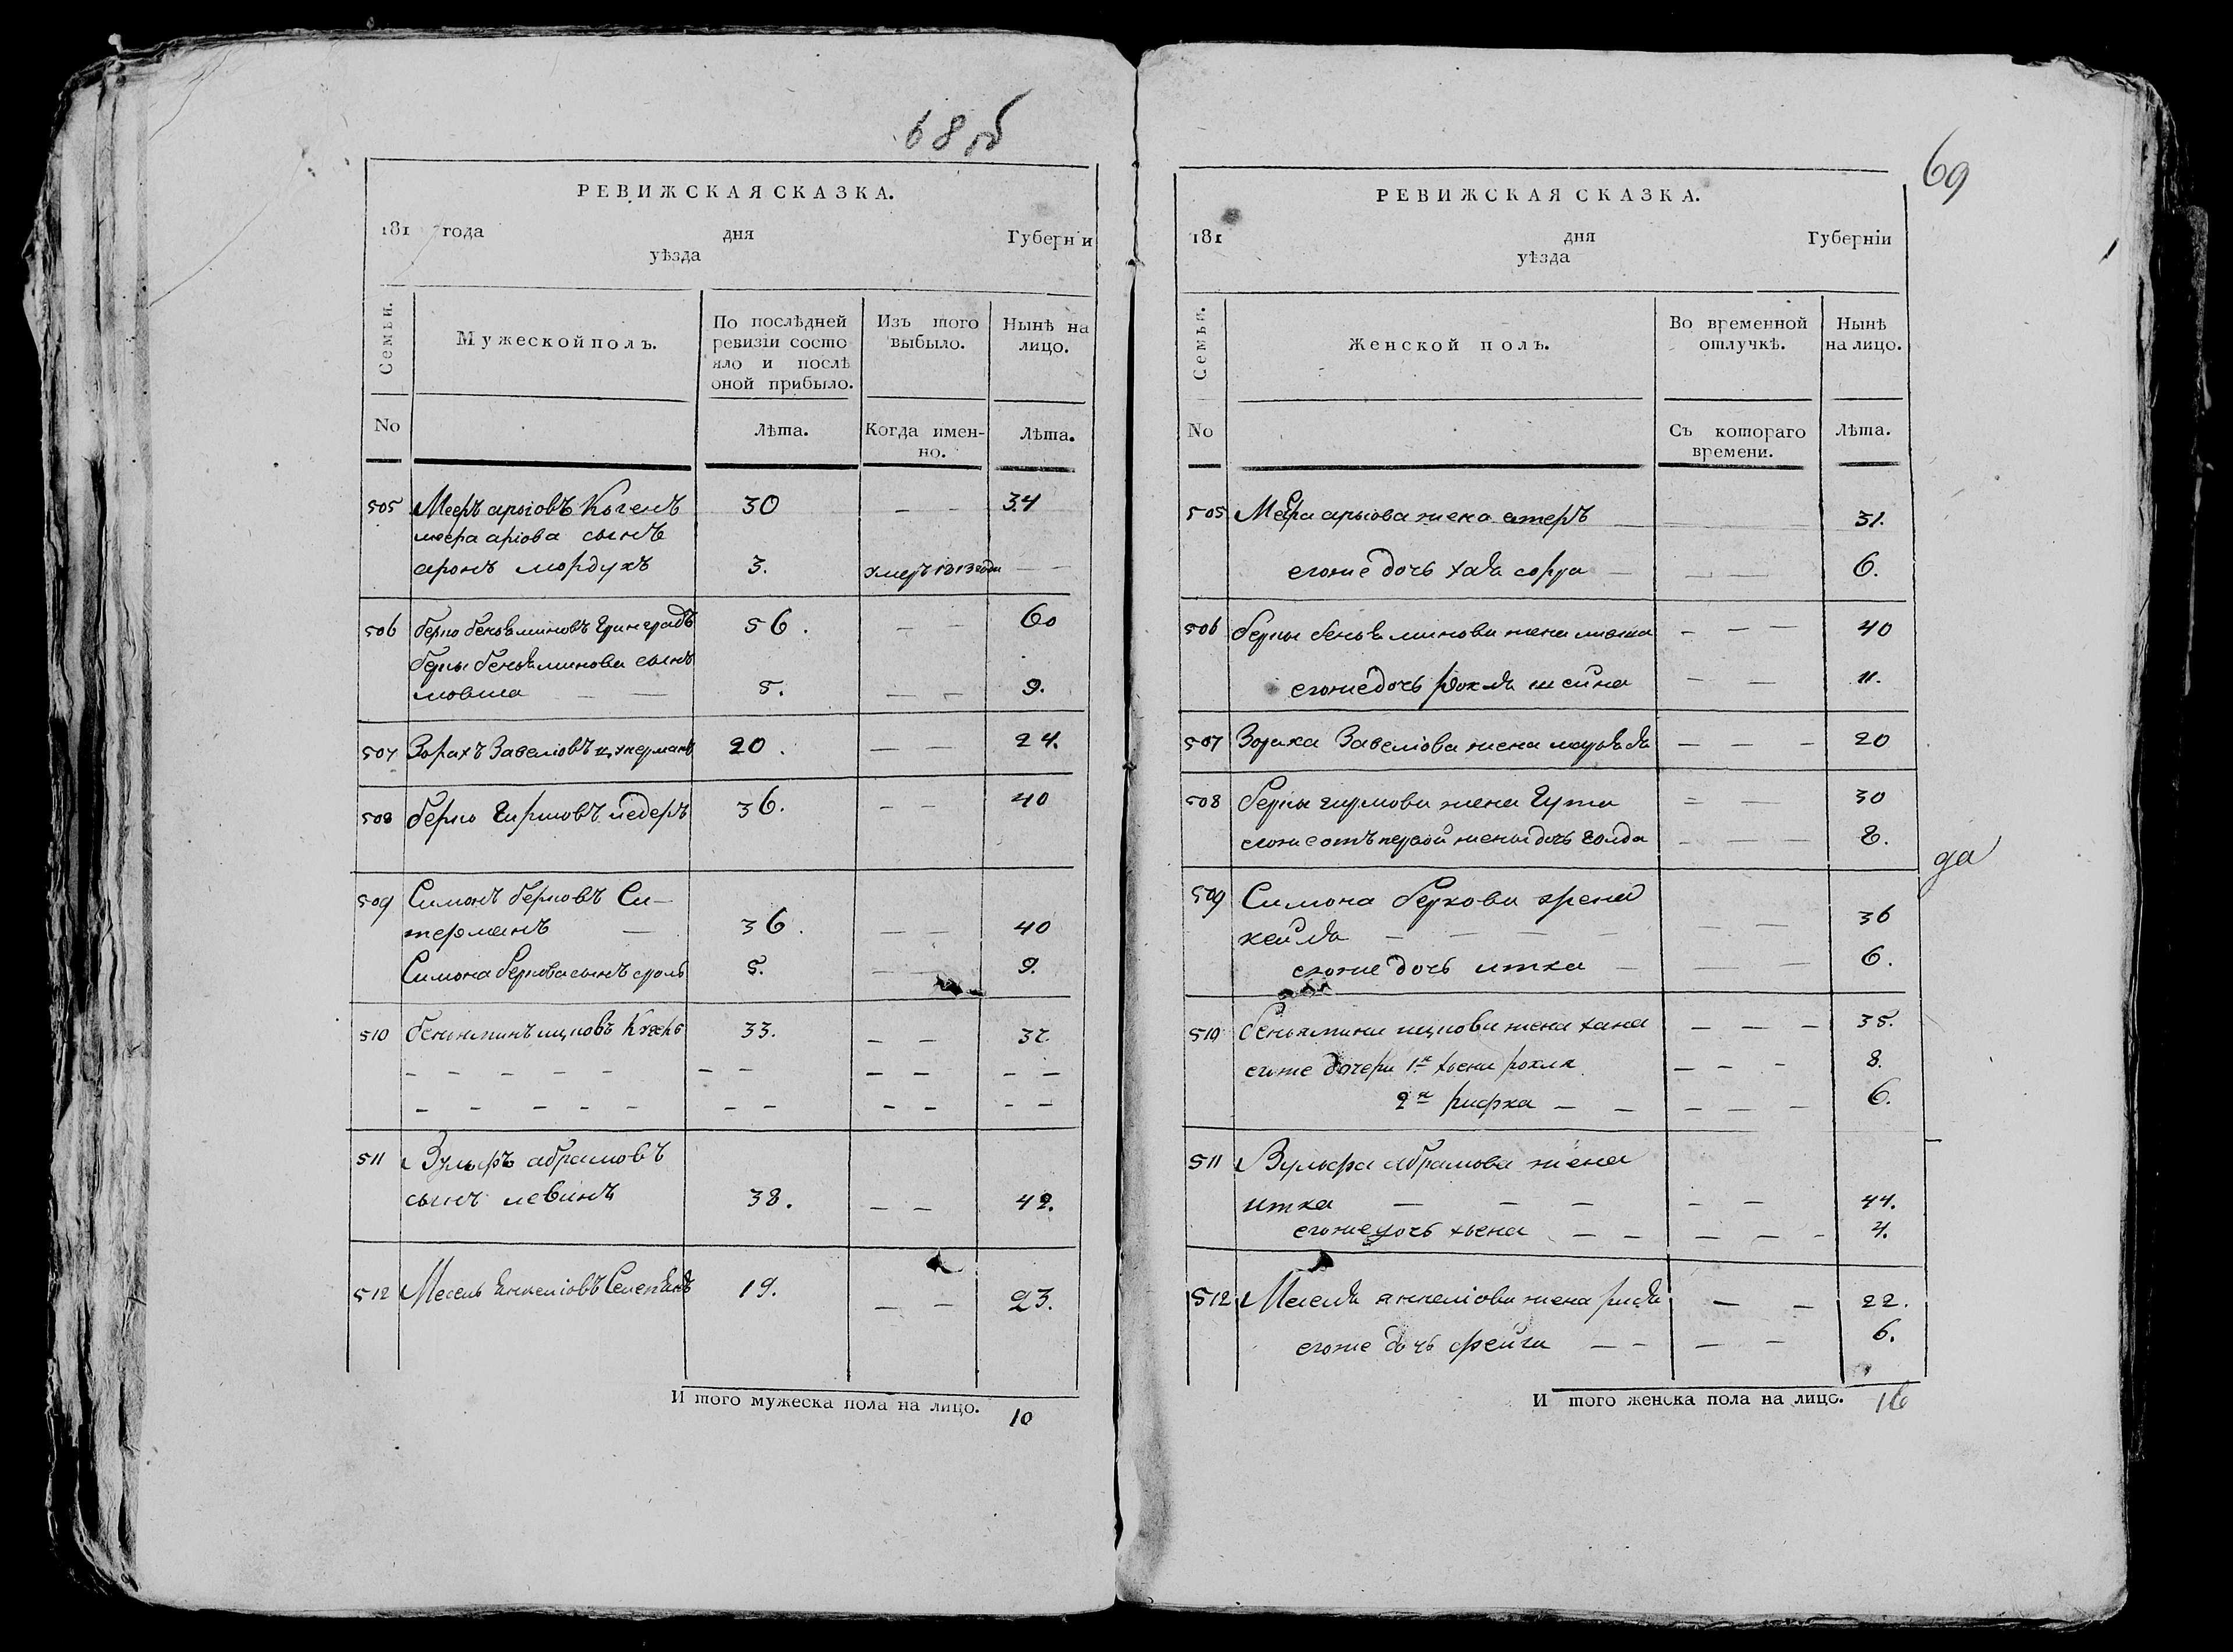 68 об
РЕВИЖСКАЯ СКАЗКА.
181 года дня Губернiи
уѣзда
Семьи. Мужеской полъ. По послѣдней ревизiи состояло и послѣ оной прибыло. Изъ того выбыло. Нынѣ на лицо.
No Лѣта. Когда именно. Лѣта.
505 Мееръ арыовъ Когенъ 30 — — 34
меера арiова сынъ
аронъ мордухъ 3. умеръ 1813 года — —
506 берко беньяминовъ 56. — — 60
берки беньяминова сынъ
мовша — — 5. — — 9.
507 Зорахъ Завелiовъ цукерманъ 20. — — 24.
508 берко гиршовъ ледеръ 36. — — 40
509 Симонъ берковъ Си-
терманъ — 36. — — 40
Симона беркова сынъ сроль 5. — — 9.
510 беньяминъ ицковъ 33. — — 37.
— — — — — — — — — — —
— — — — — — — — — — —
511 Вульфъ абрамовъ
сынъ левинъ 38. — — 42.
512 Месель янкелiовъ 19. — — 23.
И того мужеска пола на лицо. 10
69
РЕВИЖСКАЯ СКАЗКА.
181 дня Губернiи
уѣзда
Семьи. Женской полъ. Во временной отлучкѣ. Нынѣ на лицо.
No Съ котораго времени. Лѣта.
505 Меера арыова жена етеръ — — — 31.
егоже дочь хая сора — — — 6.
506 берки беньяминова жена — — — 40
егоже дочь рохля шейна — — 11.
507 Зораха Завелiова жена — — — 20
508 берки гиршова жена Гута — — 30
егоже отъ первой жены дочь голда — — — 8.
да
509 Симона беркова жена
хейля — — — — — — 36
егоже дочь итка — — — 6.
510 беньямина ицкова жена хана — — — 35.
егоже дочери 1я хьена рохля — — — 8.
2я рифка — — — — — 6.
511 Вульфа абрамова жена
итка — — — — — 44.
егоже дочь хьена — — — — — 4.
512 Меселя янкелiова жена — — 22.
егоже дочь фейга — — — — 6.
И того женска пола на лицо. 16